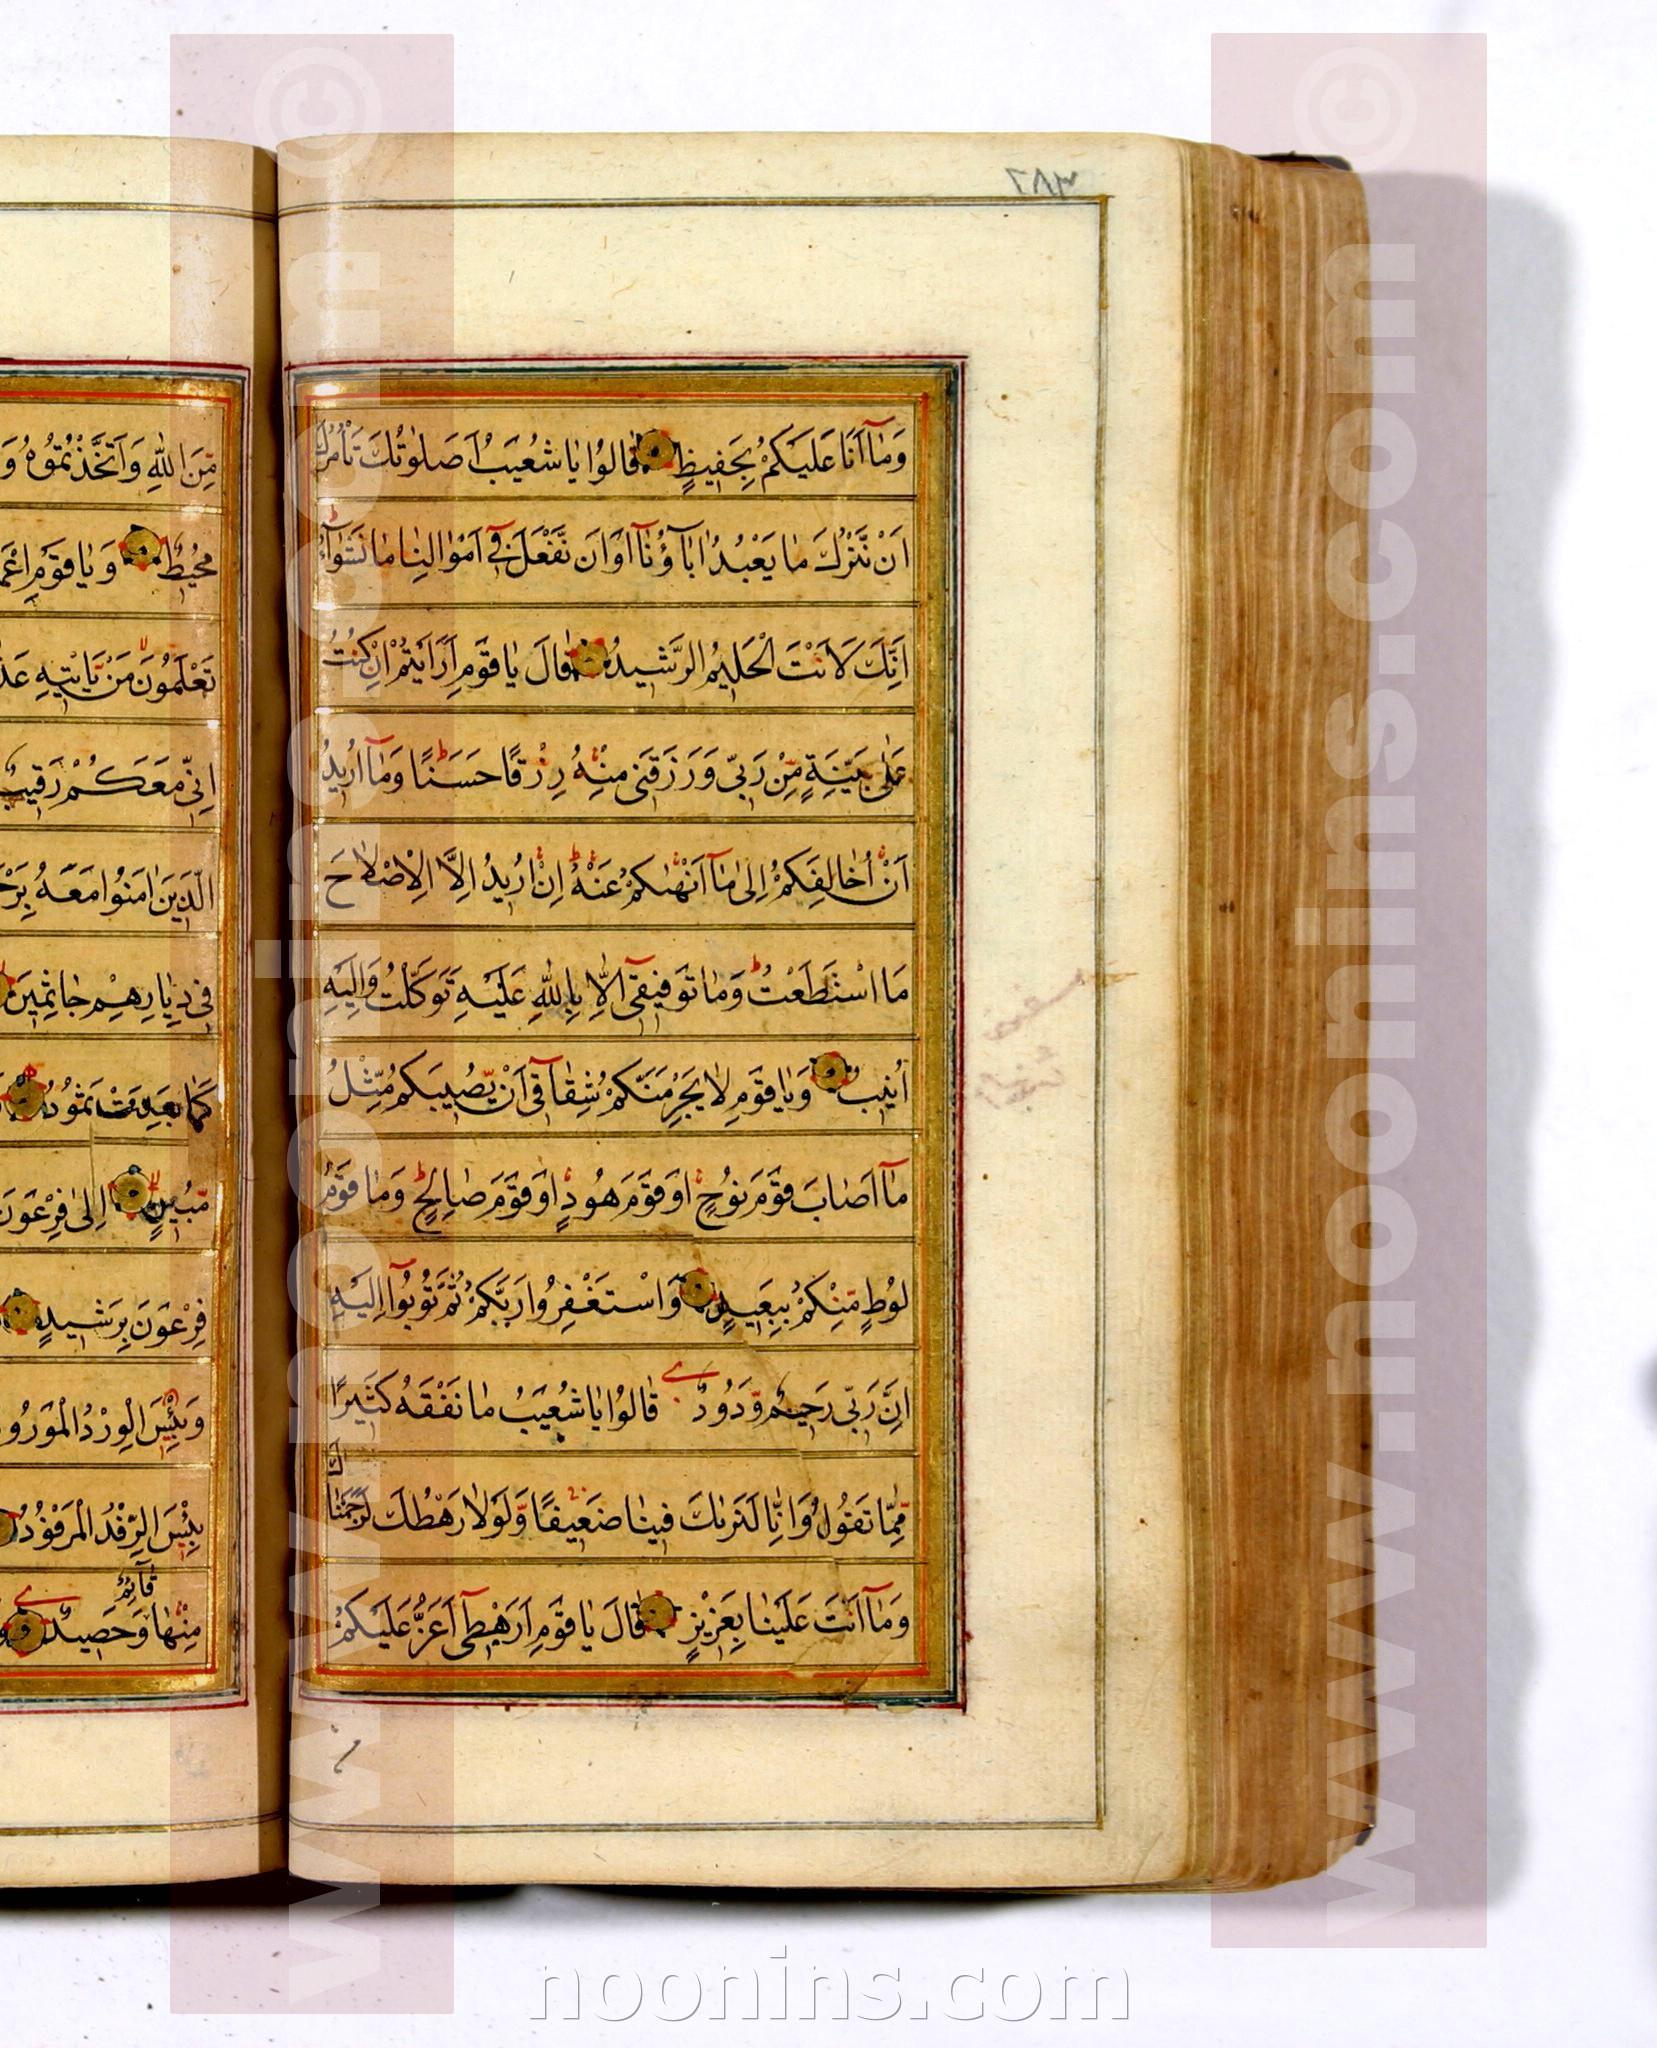 وَمَاۤ اَنَا عَلَيْكُمْ بِحَفِيظٍ قَالُوا يَا شُعَيْبُ اَصَلٰوتُكَ تَأْمُرُكَ
اَنْ نَتْرُكَ مَا يَعْبُدُ اٰبَاۤؤُنَاۤ اَوْ اَنْ نَفْعَلَ فِىۤ اَمْوَالِنَا مَا نَشٰۤؤُا
اِنَّكَ لَاَنْتَ الْحَلِيمُ الرَّشِيدُ قَالَ يَا قَوْمِ اَرَاَيْتُمْ اِنْ كُنْتُ
عَلٰى بَيِّنَةٍ مِنْ رَبِّى وَرَزَقَنِى مِنْهُ رِزْقًا حَسَنًا وَمَاۤ اُرِيدُ
اَنْ اُخَالِفَكُمْ اِلٰى مَاۤ اَنْهٰىكُمْ عَنْهُ اِنْ اُرِيدُ اِلَّا الْاِصْلَاحَ
مَا اسْتَطَعْتُ وَمَا تَوْفِيقِىۤ اِلَّا بِاللّٰهِ عَلَيْهِ تَوَكَّلْتُ وَاِلَيْهِ
اُنِيبُ وَيَا قَوْمِ لَا يَجْرِمَنَّكُمْ شِقَاقِىۤ اَنْ يُصِيبَكُمْ مِثْلُ
مَاۤ اَصَابَ قَوْمَ نُوحٍ اَوْ قَوْمَ هُودٍ اَوْ قَوْمَ صَالِحٍ وَمَا قَوْمُ
لُوطٍ مِنْكُمْ بِبَعِيدٍ وَاسْتَغْفِرُوا رَبَّكُمْ ثُمَّ تُوبُوۤا اِلَيْهِ
اِنَّ رَبِّى رَحِيمٌ وَدُودٌ قَالُوا يَا شُعَيْبُ مَا نَفْقَهُ كَثِيرًا
مِمَّا تَقُولُ وَاِنَّا لَنَرٰىكَ فِينَا ضَعِيفًا وَلَوْلَا رَهْطُكَ لَرَجَمْنَاكَ
وَمَاۤ اَنْتَ عَلَيْنَا بِعَزِيزٍ قَالَ يَا قَوْمِ اَرَهْطِىۤ اَعَزُّ عَلَيْكُمْ
مِنَ اللّٰهِ وَاتَّخَذْتُمُوهُ
مُحِيطٌ وَيَا قَوْمِ
تَعْلَمُونَ مَنْ يَأْتِيهِ
اِنِّى مَعَكُمْ رَقِيبٌ
الَّذِينَ اٰمَنُوا مَعَهُ
فِى دِيَارِهِمْ جَاثِمِينَ
كَمَا بَعِدَتْ ثَمُودُ
مُبِينٍ اِلٰى فِرْعَوْنَ
فِرْعَوْنَ بِرَشِيدٍ
وَبِئْسَ الْوِرْدُ
بِئْسَ الرِّفْدُ الْمَرْفُودُ
مِنْهَا قَاۤئِمٌ وَحَصِيدٌ
www.noonins.com ©
www.noonins.com ©
noonins.com